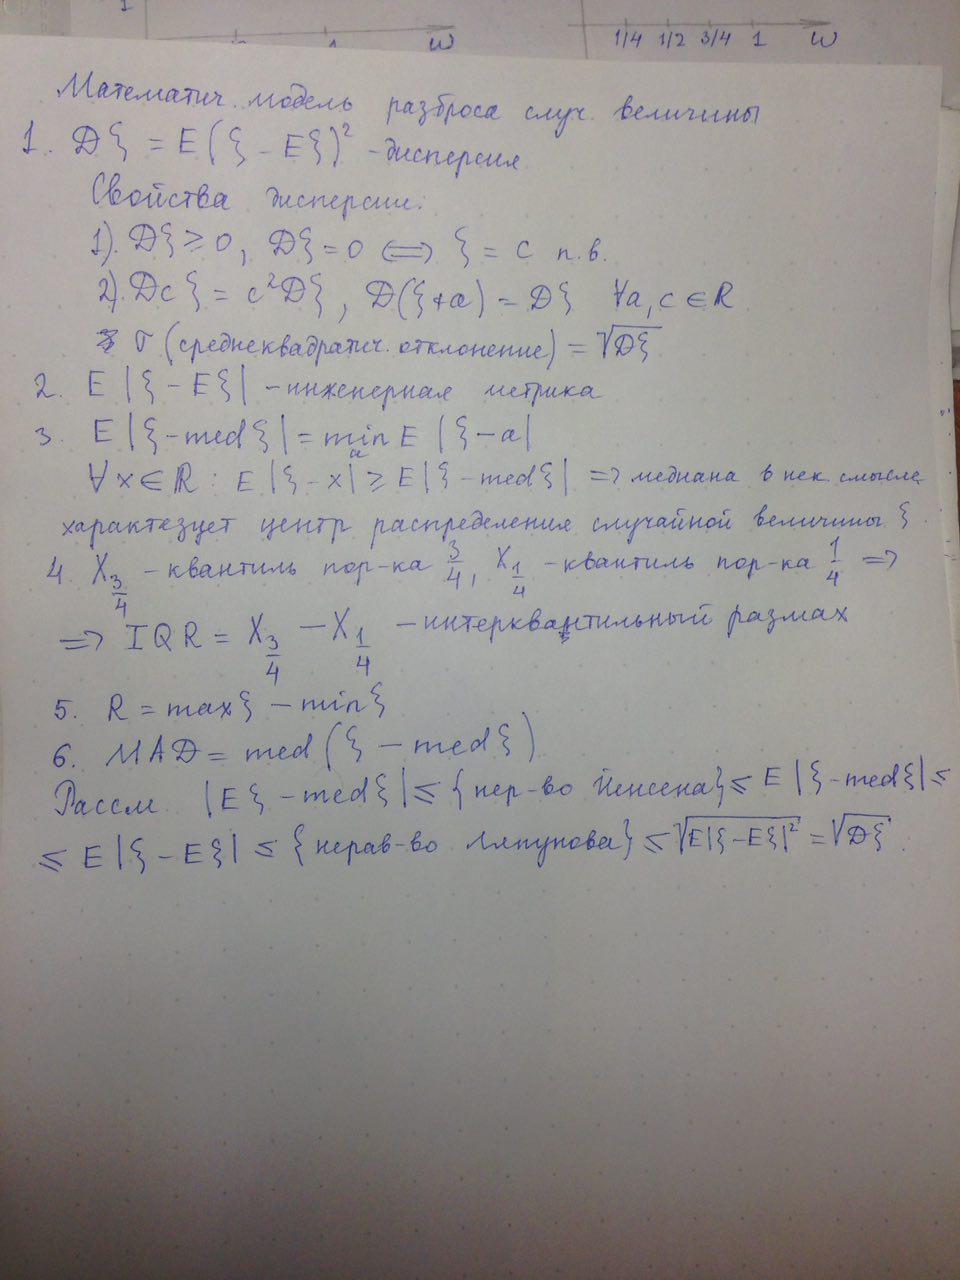 1
ω
1/4 1/2 3/4 1 ω
Математич. модель разброса случ. величины
1. Dξ = E(ξ - Eξ)² - дисперсия
Свойства дисперсии:
1). Dξ ≥ 0, Dξ = 0 ⟺ ξ = c п.в.
2). Dcξ = c²Dξ, D(ξ+a) = Dξ ∀a, c ∈ R
σ (среднеквадратич. отклонение) = √Dξ
2. E|ξ - Eξ| - инженерная метрика
3. E|ξ - medξ| = min_a E|ξ - a|
∀x ∈ R : E|ξ - x| ≥ E|ξ - medξ| => медиана в нек. смысле
характезует центр распределения случайной величины ξ.
4. X_{3/4} - квантиль пор-ка 3/4, X_{1/4} - квантиль пор-ка 1/4 =>
=> IQR = X_{3/4} - X_{1/4} - интерквантильный размах
5. R = maxξ - minξ
6. MAD = med(ξ - medξ)
Рассм. |Eξ - medξ| ≤ {нер-во Йенсена} ≤ E|ξ - medξ| ≤
≤ E|ξ - Eξ| ≤ {нерав-во Ляпунова} ≤ √E|ξ - Eξ|² = √Dξ.